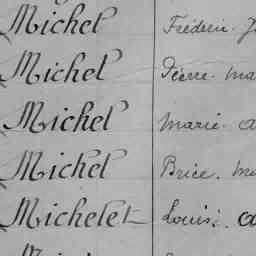 Michel Fréderic
Michel Pierre
Michel Marie
Michel Brice
Michelet Louis